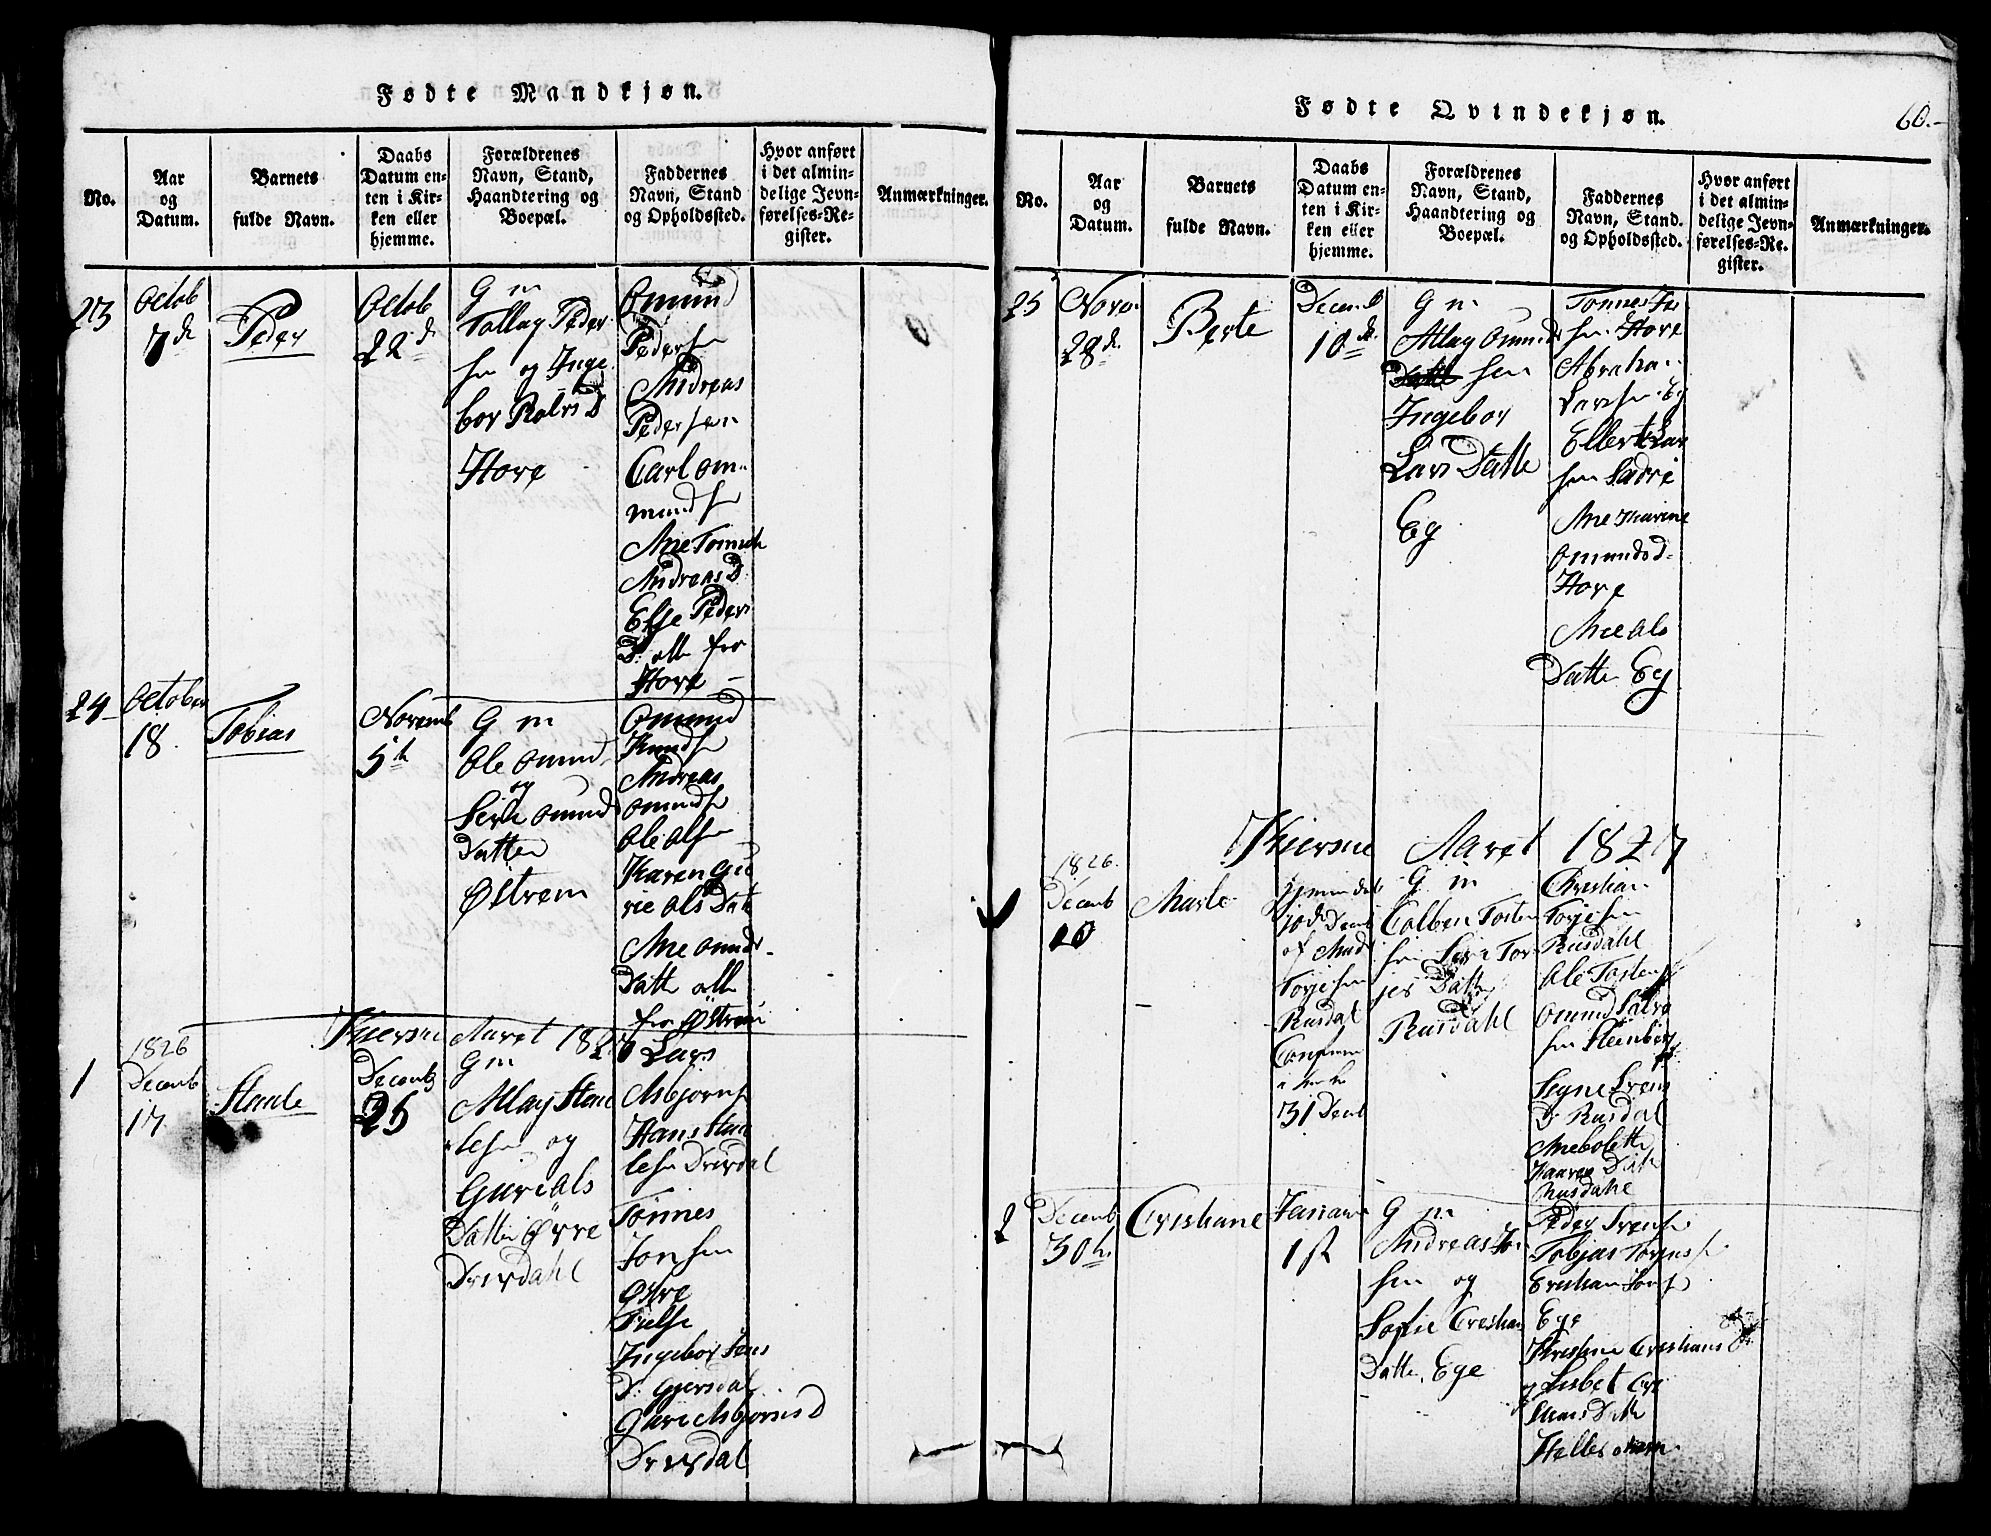 Fødte Mandkjøn.
No.
Aar
og
Datum.
Barnets
fulde Navn.
Daabs
Datum en-
ten i Kir-
ken eller
hjemme.
Forældrenes
Navn, Stand,
Haandtering og
Boepæl.
Faddernes
Navn, Stand
og Opholdssted.
Hvor anført
i det almin-
delige Jevn-
førelses-Re-
gister.
Anmærkninger.
23
Octob
7d
Peder
Octob
22d
G m
Tollag Peder
sen og Inge
bor Rolvs D
Hove
Omund
Peders
Andreas
Pedersen
Carl Om-
mundsen
Ane Tonnette
Andreas D
Else Peders
D: alle fra
Hove
24
October
18
Tobias
Novemb
5th
G m
Ole Omund
og
Siri Omund
Datter
Østrem
Omund
Knudsen
Andreas
Omundsen
Ole Olsen
Karen Gu
rie Ols Datt
Ane Omunds
Datte alle
fra Østrem
Kiersne Aaret 1827
1
1826
Decemb
17
Staale
Decemb
26
G m
Atlag Staa
lesen og
Guri Ols
Datter Øvre
Drivdahl
Lars
Asbjorns
Hans Staa
lesen Drivdal
Tonnes
Jonsen
Ingebor
D. Gjersdal
Guri Asbjorns D
Drivdal
Fødte Qvindekjøn.
60.
No.
Aar
og
Datum.
Barnets
fulde Navn.
Daabs
Datum en-
ten i Kir-
ken eller
hjemme.
Forældrenes
Navn, Stand,
Haandtering og
Boepæl.
Faddernes
Navn, Stand.
og Opholdssted.
Hvor anført
i det almin-
delige Jevn-
førelses-Re.
gister.
Anmærkninger.
25
Novem
28d.
Berte
Decemb
10d
G m
Atlag Omund
sen
Ingebor
Lars Datte
Eg
Tonnes
sen Hove
Abraham
Larssen Eg
Ellert Lar
sen Ladre
Ane Karine
Omunds D.
Hove
Ane Ols
Datte Eg
Kiersne Aaret 1827
1826.
Decemb
10
Marte
Hjemme døbt
10de Decemb
af Aad
Torjesen
Rusdal
31 Decemb
G m
Colben Tosten
sen Siri Tor
jes Datter
Rusdahl
Christian
Torjesen
Rusdahl
Ole Tostens
Omund Salve
sen Steinberg
Signe Svens
D. Rusdal
Anebolette
Datte
Rusdahl
2
Decemb
30te
Cristiane
Januar
1st
G m
Andreas Jon
sen og
Sofie Cristian
Datter, Ege
Peder Svens
Tobias Torjus
Cristian Jons
Ege
Kristine Cristians D
Lisbet Cri
stians Datte
Helles